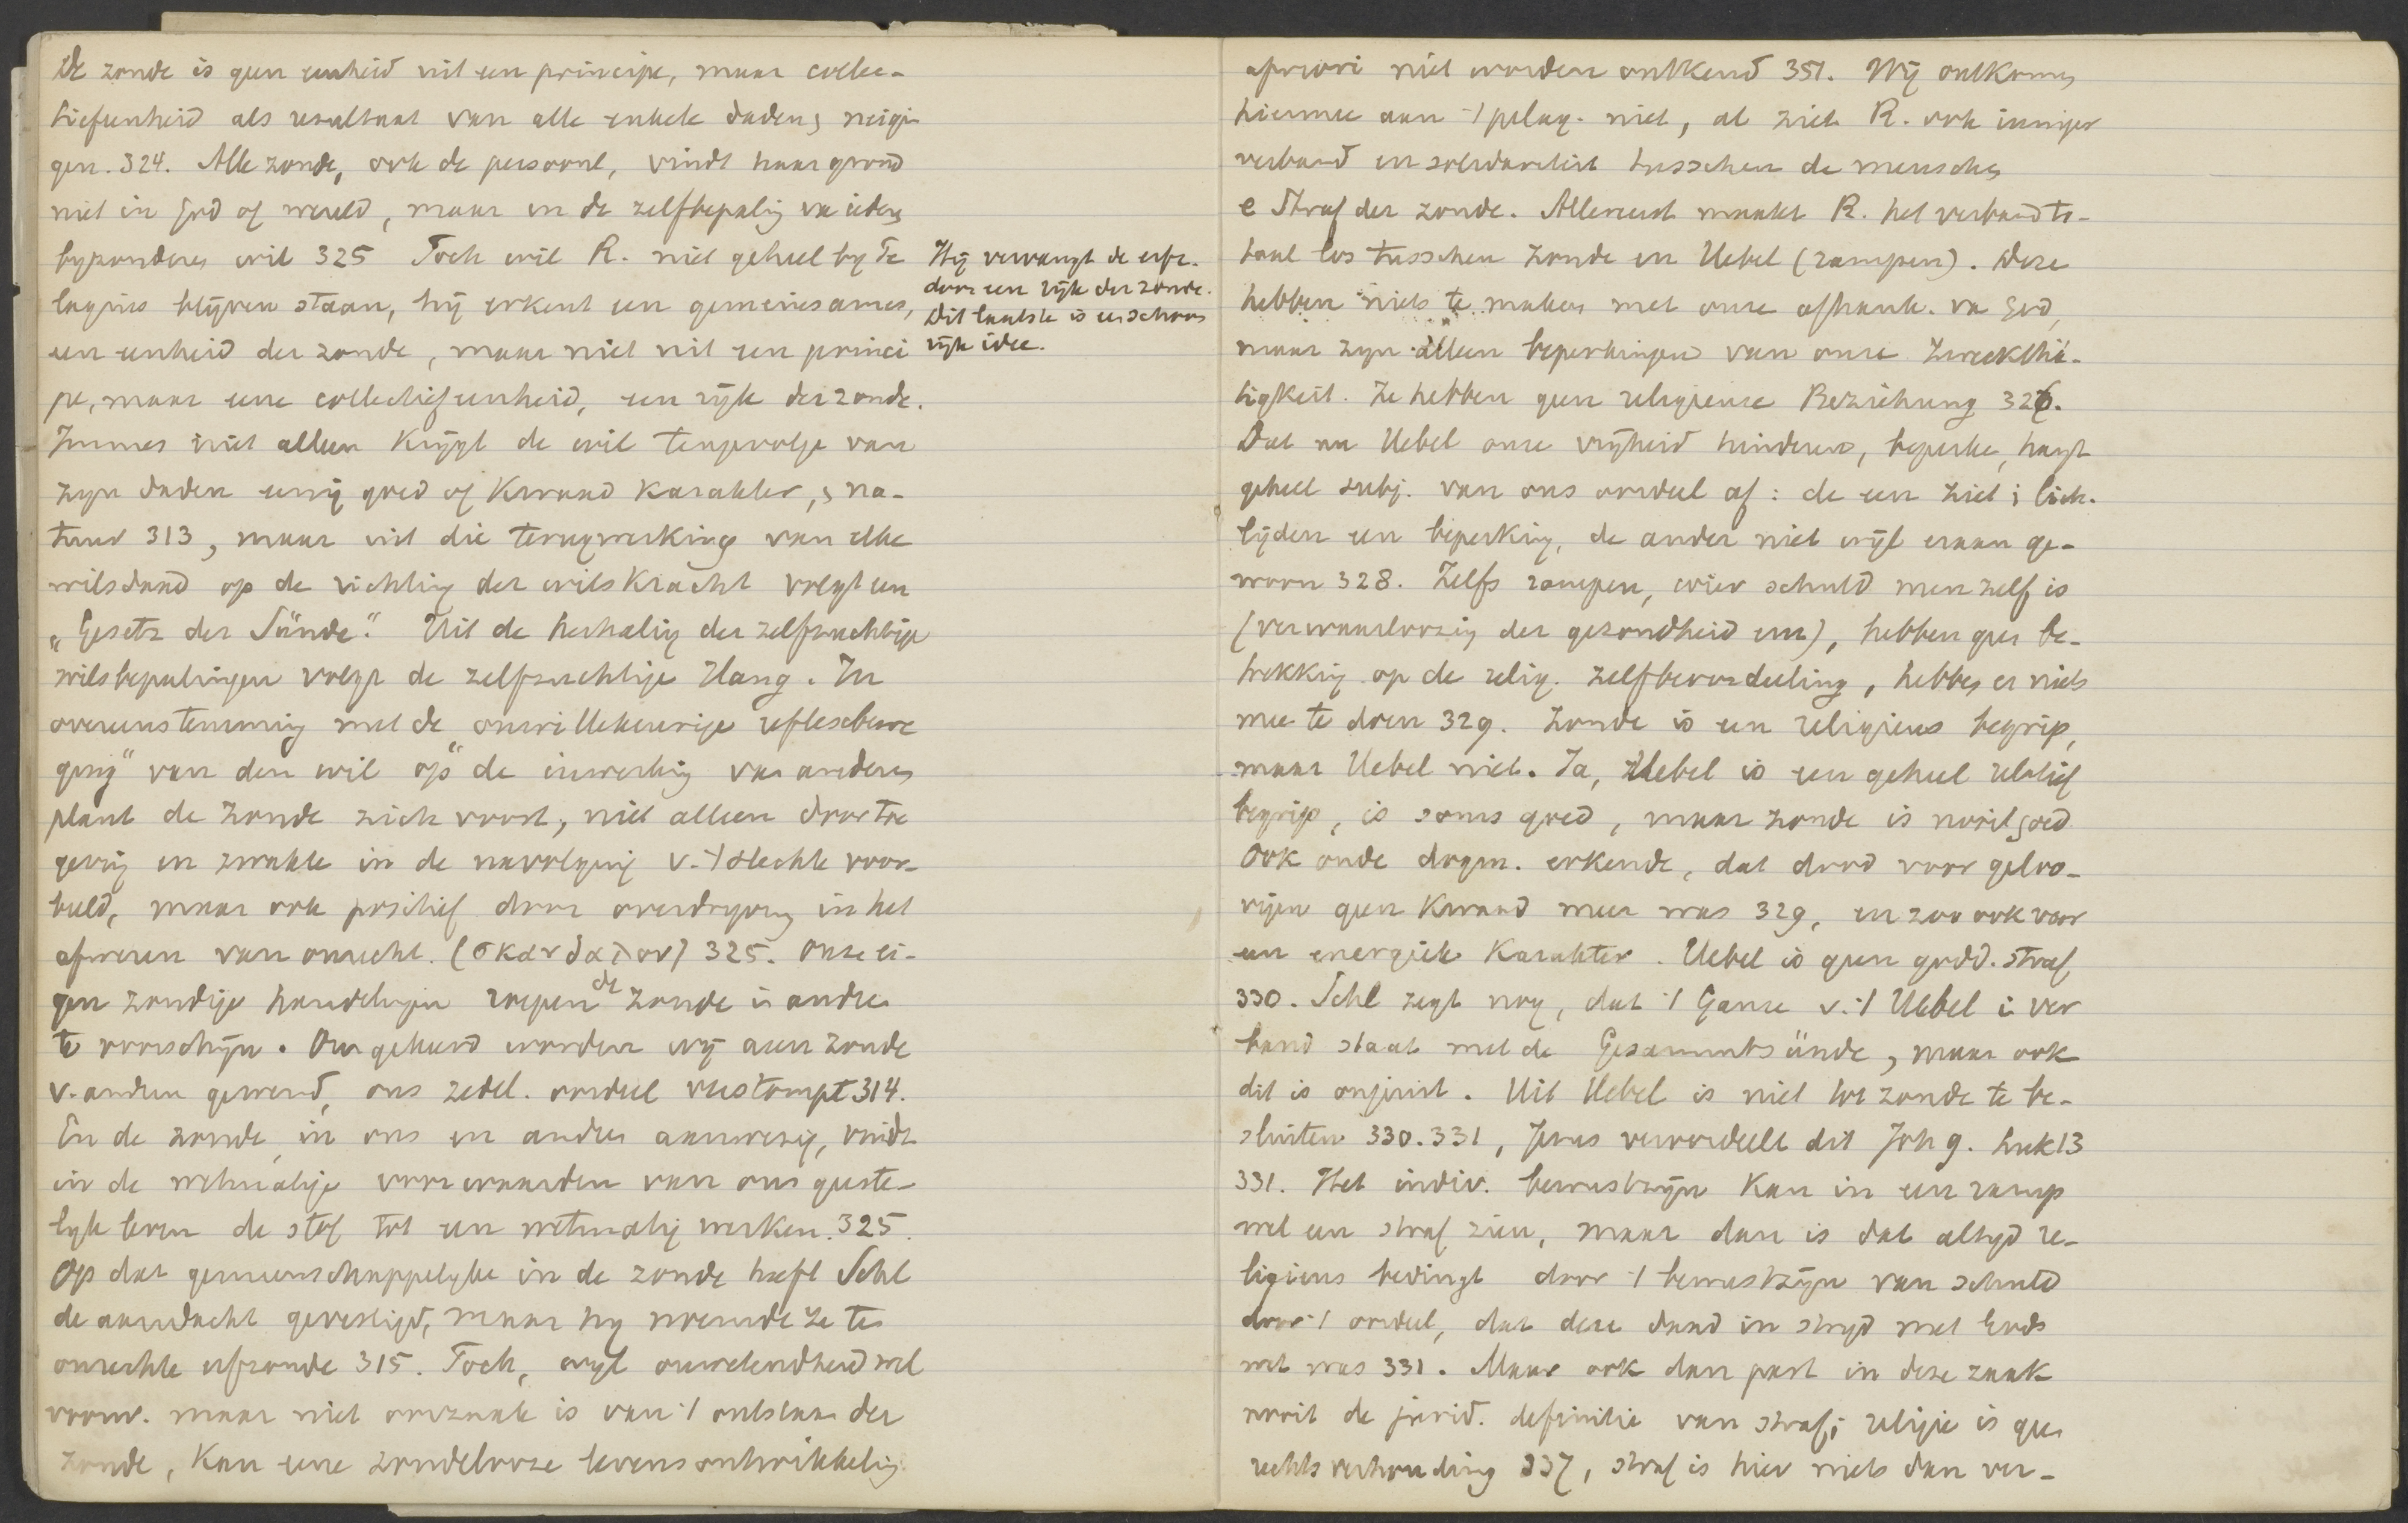 De zonde is geen eenheid uit een principe, maar collec-
tiefeenheid als resultaat van alle enkele daden, neigin
gen. 324. Alle zonde, ook de persoonl, vindt haar grond
niet in God of wereld, maar in de zelfbepaling va ieders
byzonderen wil 325 Toch wil R. niet geheel by Pe
lagius blijven staan, hij erkent een gemeinsames,
een eenheid der zonde, maar niet uit een princi
pe, maar eene collectiefeenheid, een rijk der zonde.
Immers niet alleen krijgt de wil tengevolge van
zyn daden eenig goed of kwaad karakter, na-
tuur 313, maar uit die terugwerking van elke
wilsdaad op de richting der wilskracht volgt een
„Gesetz der Sünde." Uit de herhaling der zelfzuchtige
wilsbepalingen volgt de zelfzuchtige Hang. In
overeenstemming met de onwillekeurige „reflexbewe
ging" van den wil op de inwerking van anderen
plant de zonde zich voort, niet alleen door toe
geving en zwakte in de navolging v. 't slechte voor-
beeld, maar ook positief door overdrijving in het
afweren van onrecht. (σκανδαλον) 325. Onze ei-
gen zondige handelingen roepen de zonde in andren
te voorschijn. Omgekeerd worden wij aan zonde
v. andren gewend, ons zedel. oordeel verstompt 314.
En de zonde, in ons en andren aanwezig, vindt
in de wetmatige voorwaarden van ons geeste-
lyk leven de stof tot een wetmatig werken. 325.
Op dat gemeenschappelyke in de zonde heeft Schl
de aandacht gevestigd, maar hy noemde ze te
onrechte erfzonde 315. Toch, wyl onwetendheid wel
voorw. maar niet oorzaak is van 't ontstaan der
zonde, kan eene zondelooze levensontwikkeling
Hij vervangt de erfz.
door een rijk der zonde.
Dit laatste is een schoon
rijk idee.
apriori niet worden ontkend 351. Wij ontkomen
hiermee aan 't pelag. niet, al ziet R. ook inniger
verband en solidariteit tusschen de menschen
e Straf der zonde. Allereerst maakt R. het verband to-
taal los tusschen zonde en Uebel (rampen). Deze
hebben niets te maken met onze afhank. va God,
maar zyn alleen beperkingen van onze Zweckthä-
tigkeit. Ze hebben geen religieuze Beziehung 326.
Dat nu Uebel onze vrijheid hinderen, beperken, hangt
geheel subj. van ons oordeel af: de een ziet i lich.
lijden een beperking, de ander niet wijl eraan ge-
woon 328. Zelfs rampen, wier schuld men zelf is
(verwaarloozing der gezondheid enz), hebben geen be-
trekking op de relig. zelfbeoordeeling, hebben er niets
mee te doen 329. Zonde is een religieus begrip,
maar Uebel niet. Ja, Uebel is een geheel relatief
begrip, is soms goed, maar zonde is nooit goed
Ook oude dogm. erkende, dat dood voor geloo-
vigen geen kwaad meer was 329, en zoo ook voor
een energiek karakter. Uebel is geen godd. straf
330. Schl zegt nog, dat 't Ganze v. 't Uebel in ver
band staat met de Gesammtsünde, maar ook
dit is onjuist. Uit Uebel is niet tot zonde te be-
sluiten 330. 331, Jezus veroordeelt dit Joh 9. Luk 13
331. Het indiv. bewustzijn kan in een ramp
wel een straf zien, maar dan is dat altyd re-
ligieus bedingt door 't bewustzijn van schuld
door 't oordeel, dat deze daad in stryd met Gods
wet was 331. Maar ook dan past in deze zaak
nooit de jurid. definitie van straf; religie is geen
rechtsverhouding 337, straf is hier niets dan ver-